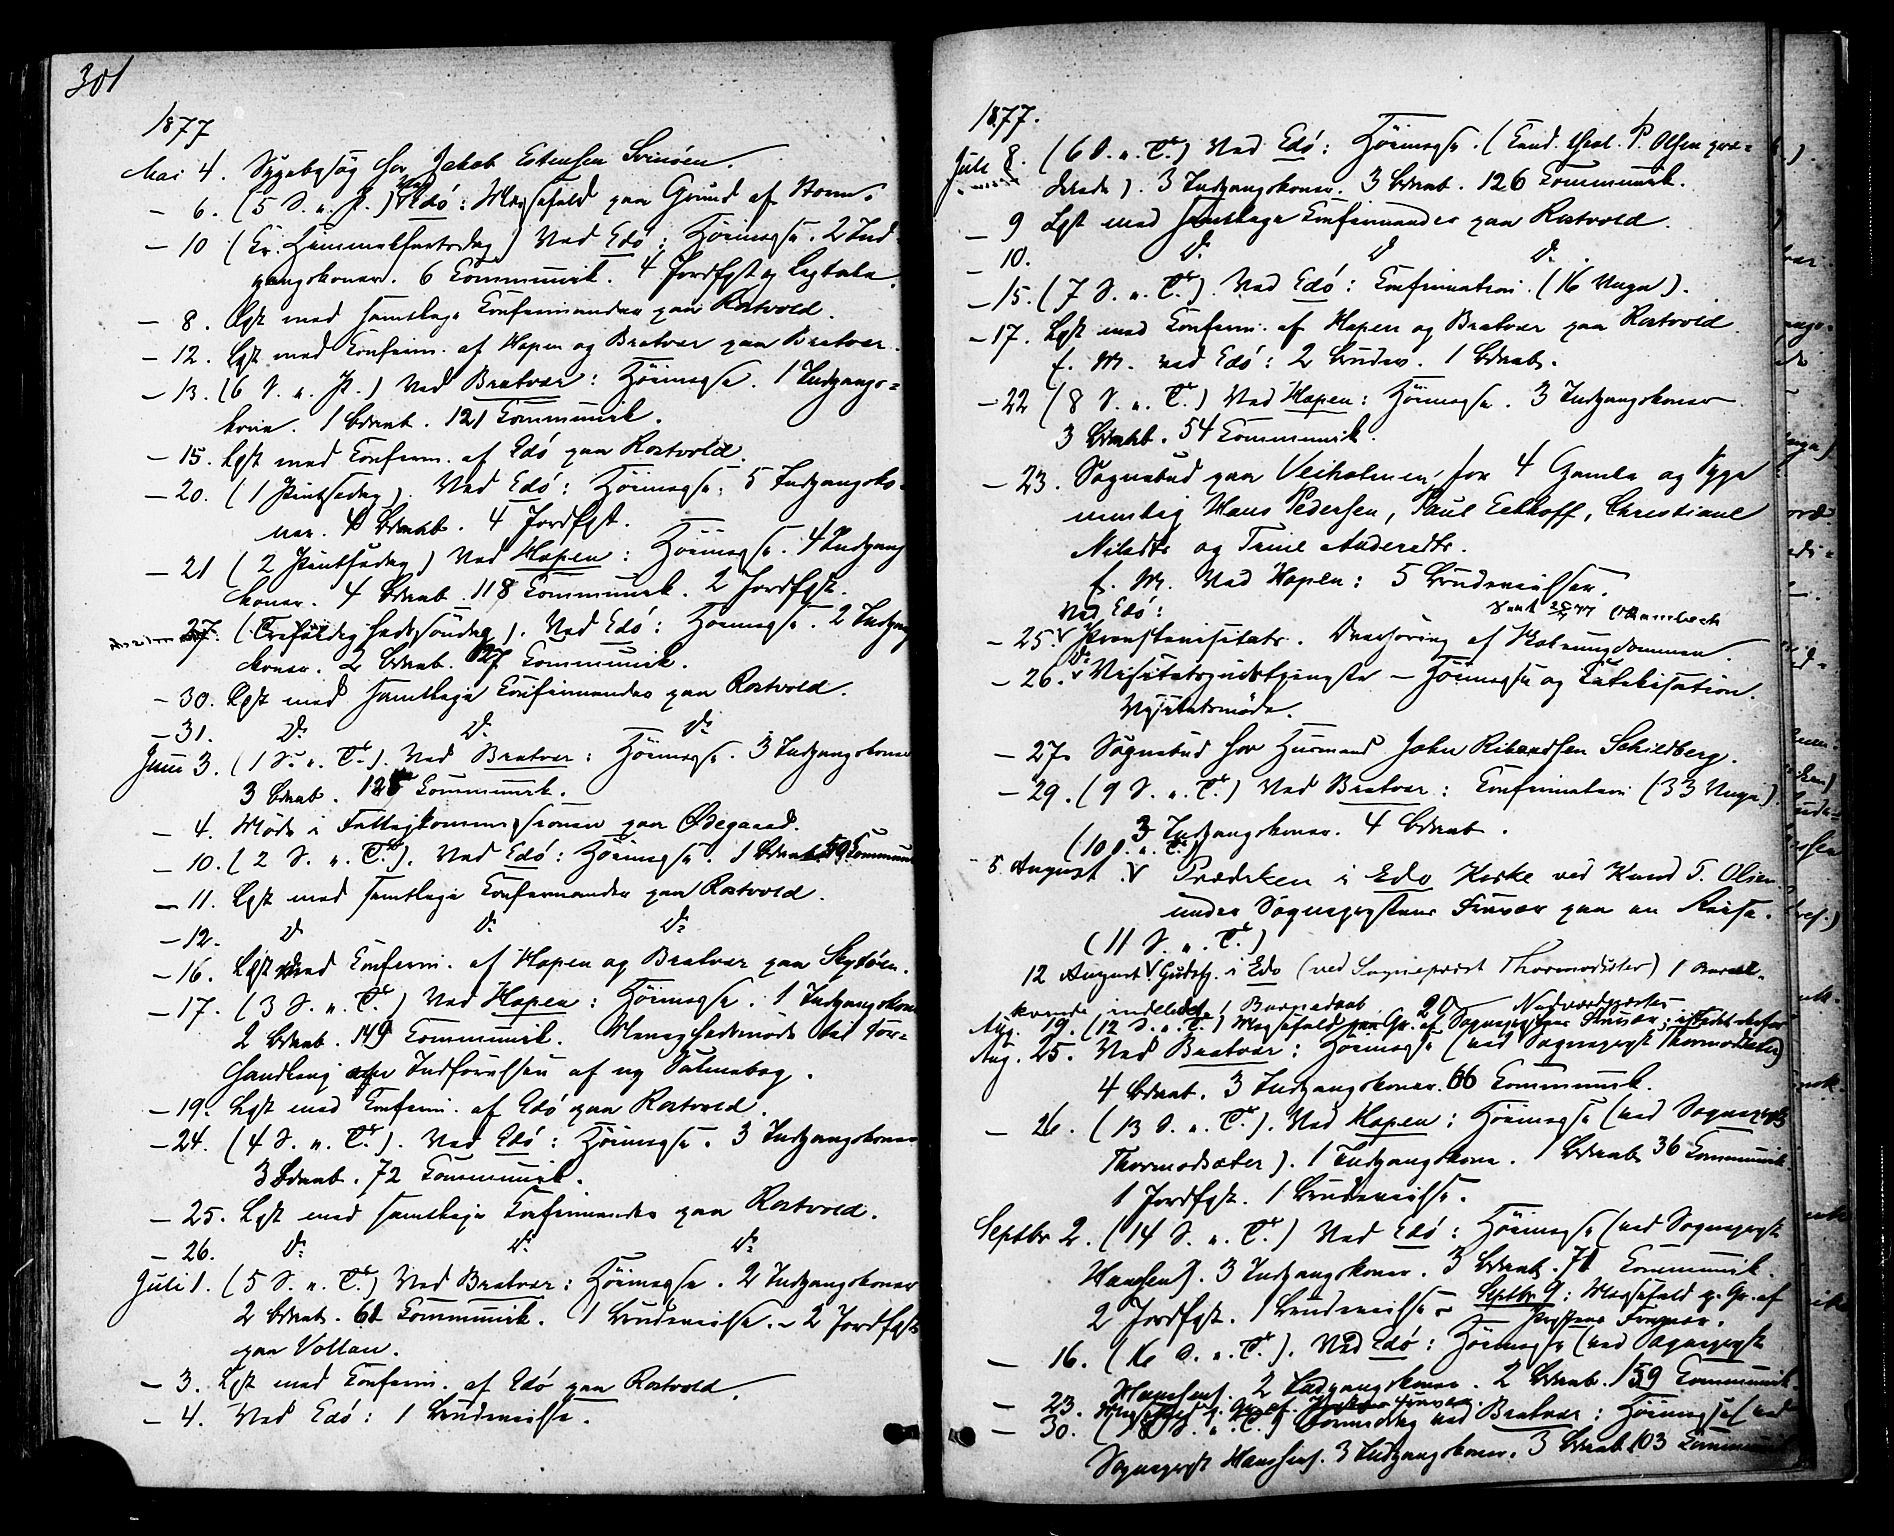 301
1877
Mai 4. Sygebesøg hos Jakob Estensen Svinøen.
— 6. (5 S. e. P.) Ved Edø: Messefald paa Grund af Storm.
— 10 (Kr. Himmelfartsdag) Ved Edø: Høimesse. 2 Ind-
gangskoner. 6 Communik. 4 Jordfæst. og Ligtale.
— 8. Læst med samtlige Confirmander paa Rostvold.
— 12. Læst med Confirm. af Hopen og Bratvær paa Bratvær.
— 13. (6 S. e. P.) Ved Bratvær: Høimesse. 1 Indgangs=
kone. 1 Bdaab. 121 Communik.
— 15. Læst med Confirm. af Edø paa Rostvold.
— 20. (1 Pintsedag). Ved Edø: Høimesse. 5 Indgangsko-
ner. Bdaab. 4 Jordfæst.
— 21 (2 Pintsedag) Ved Hopen: Høimesse. 4 Indgang
koner. 4 Bdaab. 118 Communik. 2 Jordfæst.
27. (Trefoldighedssøndag). Ved Edø: Høimesse. 2 Indgang
koner. 2 Bdaab. 127 Communik.
— 30. Læst med samtlige Confirmander paa Rostvold.
— 31. Do Do Do
Juni 3. (1 S. e. Tr.). Ved Bratvær: Høimesse. 3 Indgangskoner
3 Bdaab. Communik.
— 4. Møde i Fattigkommissionen paa Ødegaard.
— 10. (2 S. e. Tr.). Ved Edø: Høimesse. 1 Bdaab. 59 Commun
— 11. Læst med samtlige Confirmander paa Rostvold.
— 12. Do Do Do
— 16. Læst med Confirm. af Hopen og Bratvær paa Skydøen.
— 17. (3 S. e. Tr.) Ved Hopen: Høimesse. 1 Indgangskone
2 Bdaab. 149 Communik. Menighedsmøde til For=
handling Indførelsen af ny Salmebog.
— 19. Læst med Confirm. af Edø paa Rostvold.
— 24. (4 S. e. Tr.). Ved Edø: Høimesse. 3 Indgangskoner
3 Bdaab. 72 Communik.
— 25. Læst med samtlige Confirmander paa Rostvold.
— 26. Do Do Do
Juli 1. (5 S. e. Tr.) Ved Bratvær: Høimesse. 2 Indgangskoner
2 Bdaab. 61 Communik. 1 Brudevielse. — 2 Jordfæst
paa Vollan.
— 3. Læst med Confirm. af Edø paa Rostvold.
— 4. Ved Edø: 1 Brudevielse.
1877.
Juli 8. (6 S. e. Tr.) Ved Edø: Høimesse. (Cand. theol. P. Olsen præ=
dikede). 3 Indgangskoner. 3 Bdaab. 126 Communik.
— 9 Læst med samtlige Confirmander paa Rostvold.
— 10. Do Do Do
— 15. (7 S. e. Tr.). Ved Edø: Confirmation. (16 Unge).
— 17. Læst med Confirm. af Hopen og Bratvær paa Rostvold.
f. M. ved Edø: 2 Bruder. 1 Bdaab.
— 22 (8 S. e. Tr.) Ved Hopen: Høimesse. 3 Indgangskoner.
3 Bdaab. 54 Communik.
— 23. Sognebud paa Veiholmen, for 4 Gamle og Syge
nemlig Hans Pedersen, Paul Eckhoff, Christiane
Nilsdtr og Trine Andersdtr.
f. M. Ved Hopen: 5 Brudevielser.
Ved Edø:
— 25. Provstevisitats. Overhøring af Skoleungdommen.
— 26. Do Visitatsgudstjeneste — Høimesse og Catekisation.
Visitatsmøde.
— 27. Sognebud hos Husmand John Schildberg.
— 29. (9 S. e. Tr.) Ved Bratvær: Confirmation (33 Unge).
3 Indgangskoner. 4 Bdaab.
(10 S. e. Tr.)
5 August Prædiken i Edø Kirke ved Kand T. Olsen
under Sognepræstens Fravær paa en Reise.
(11 S. e. Tr.)
12 August Gudstj. i Edø (ved Sognepræst Thormodsæter) 1 Barsel-
kvinde indledet, 1 Barnedaab.
Aug. 19. (12 S. e. Tr.) Messefald paa Gr. af Sognepræstens Fravær.
Aug. 25. Ved Bratvær: Høimesse (ved Sognepræst Thormodsæter)
4 Bdaab. 3 Indgangskoner. 66 Communik.
— 26. (13 S. e. Tr.). Ved Hopen: Høimesse (ved Sognepræst
Thormodsæter). 1 Indgangskone. 1 Bdaab. 36 Communik.
1 Jordfæst. 1 Brudevielse.
Septbr 2. (14 S. e. Tr.) Ved Edø: Høimesse (ved Sognepræst
Hanssen). 3 Indgangskoner. 3 Bdaab. 71 Communik.
2 Jordfæst. 1 Brudevielse. Septbr 9: Messefald p. Gr. af
Præstens Fravær.
— 16. (16 S. e. Tr.). Ved Edø: Høimesse (ved Sognepræst
Hanssen). 2 Indgangskoner. 2 Bdaab. 159 Communik.
— 23. Messefald p. Gr. af Præstens Fravær.
— 30. ved Bratvær: Høimesse (ved
Sognepræst Hanssen). 3 Indgangskoner. 3 Bdaab. 103 Communik